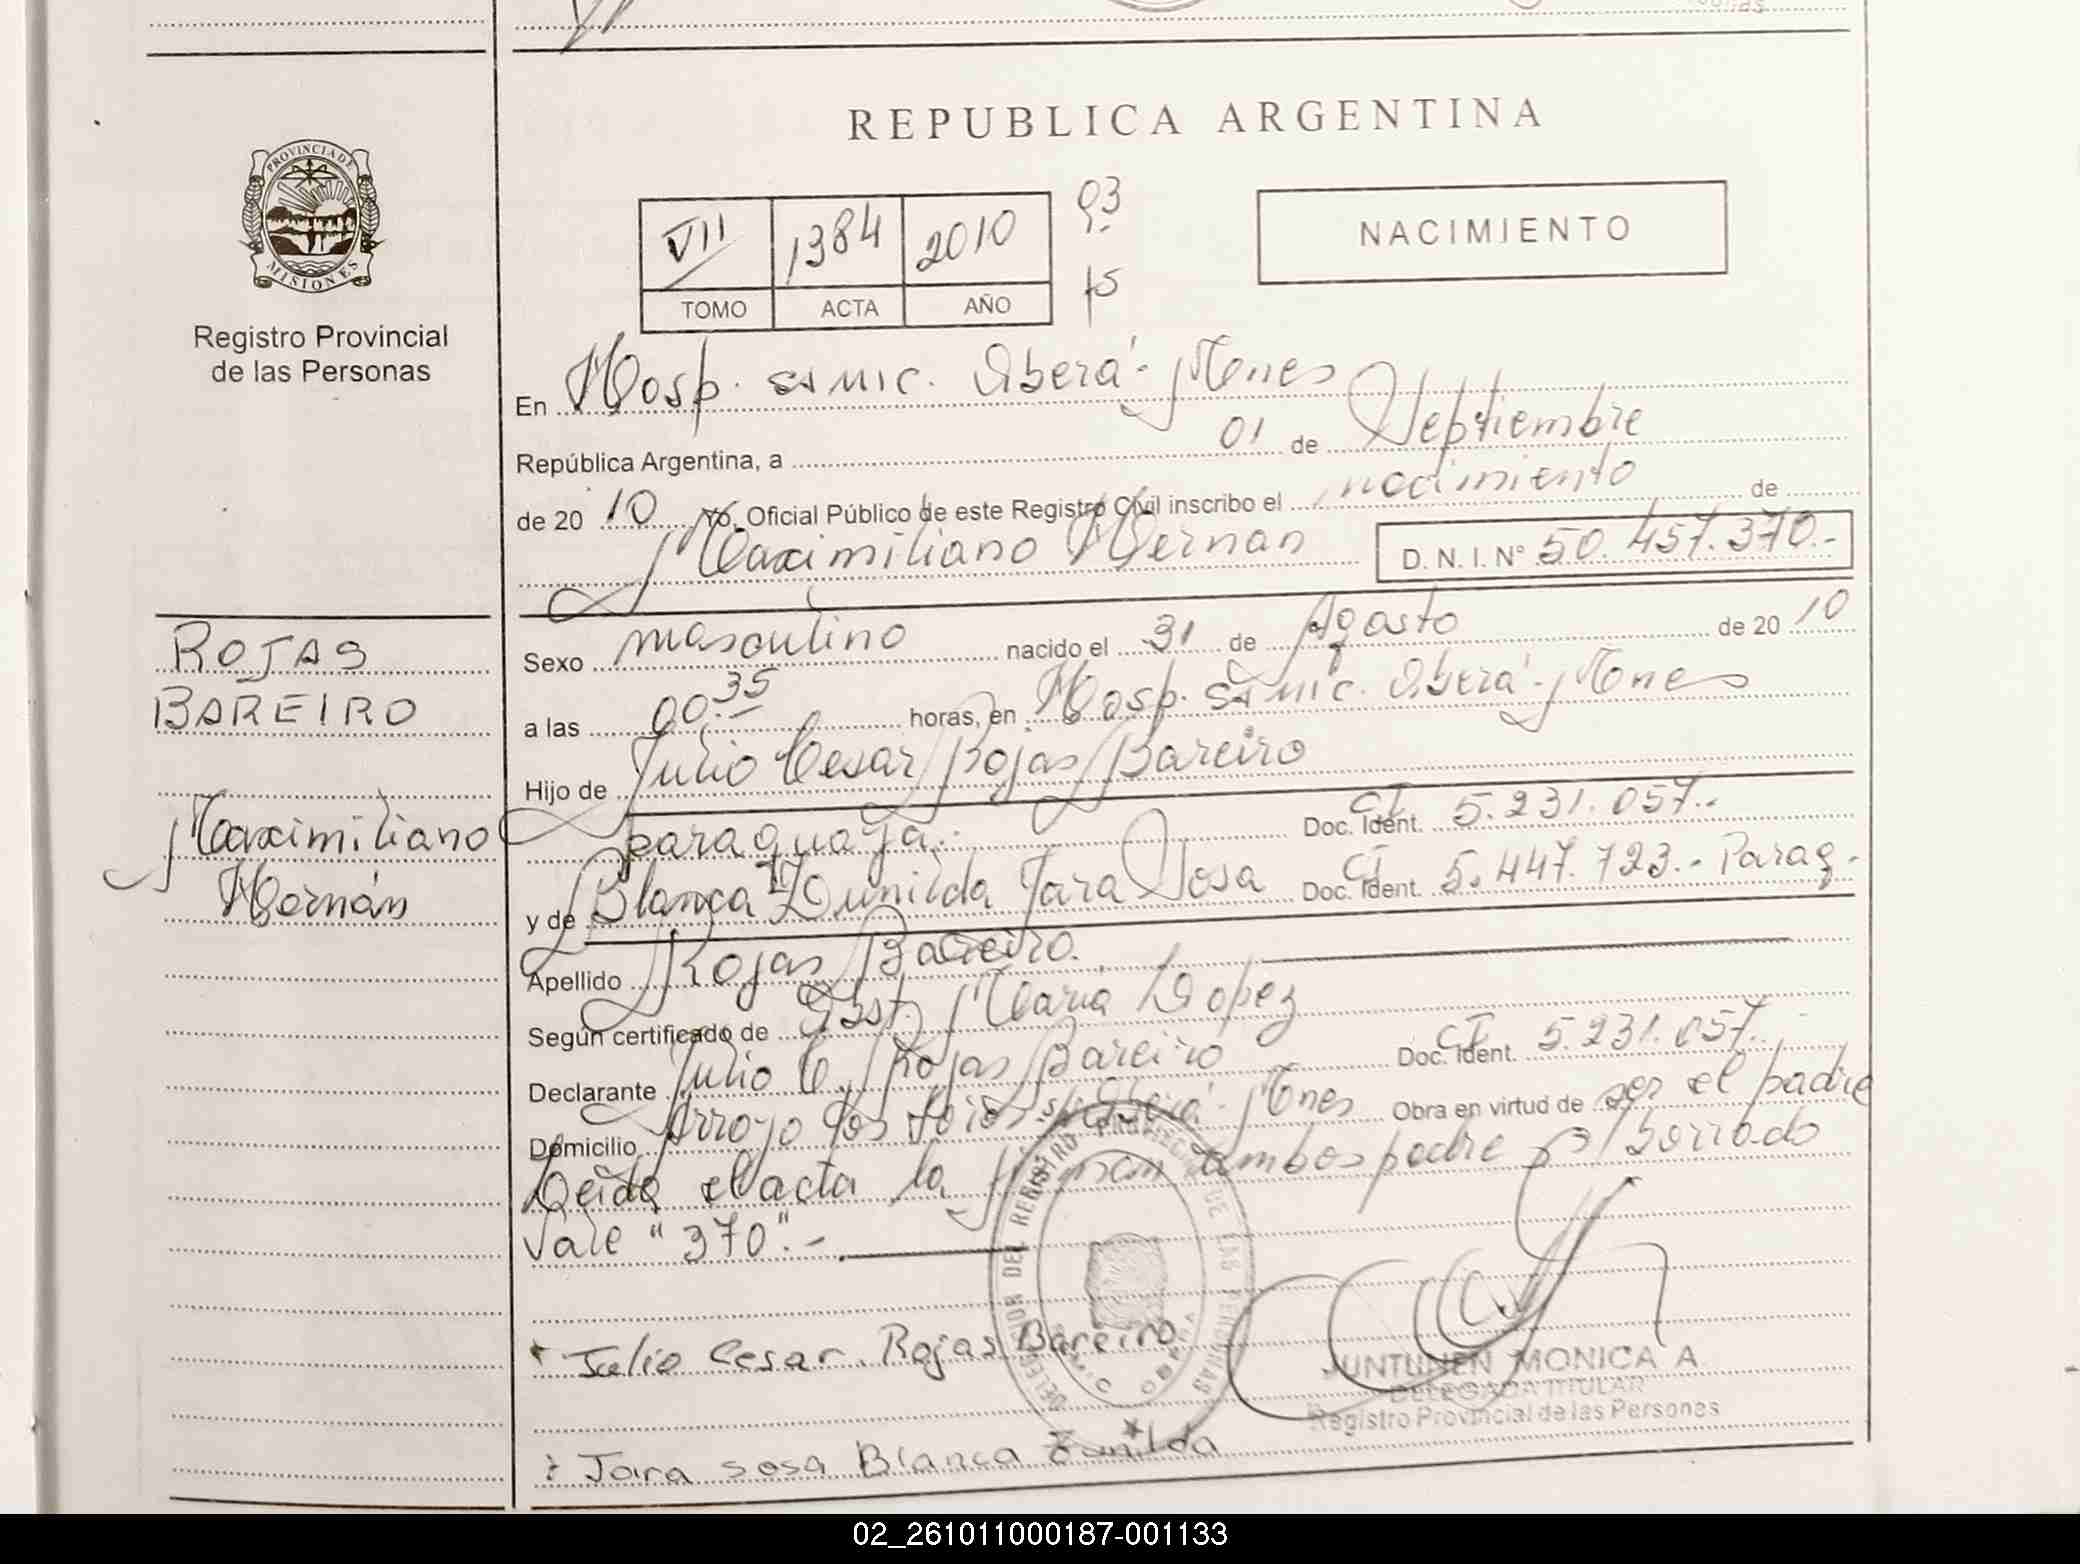 REPUBLICA ARGENTINA
PROVINCIA DE
MISIONES
Registro Provincial
de las Personas
VII 1384 2010
TOMO ACTA AÑO
03
15
NACIMIENTO
En Hosp. SAMIC. Oberá - Mnes
República Argentina, a 01 de Septiembre
de 20 10 Yo, Oficial Público de este Registro Civil inscribo el nacimiento de
Maximiliano Hernan D. N. I. N° 50.457.370.-
ROJAS
BAREIRO
Maximiliano
Hernán
Sexo masculino nacido el 31 de Agosto de 20 10
a las 00.35 horas, en Hosp. SAMIC. Oberá - Mnes
Hijo de Julio Cesar Rojas Bareiro
paraguaya. Doc. Ident. CI 5.231.057.-
y de Blanca Zunilda Jara Sosa Doc. Ident. CI 5.447.723.- Parag.
Apellido Rojas Bareiro.
Según certificado de Obst. Maria Lopez
Declarante Julio C. Rojas Bareiro Doc. Ident. CI 5.231.057.-
Domicilio Arroyo Los Oberá - Mnes Obra en virtud de ser el padre
Leida el acta la firman ambos padre s/ Borrado
Vale "370".-
Julio Cesar. Rojas Bareiro
Jara sosa Blanca Zunilda
JUNTUNEN MONICA A
DELEGADA TITULAR
Registro Provincial de las Personas
02_261011000187-001133